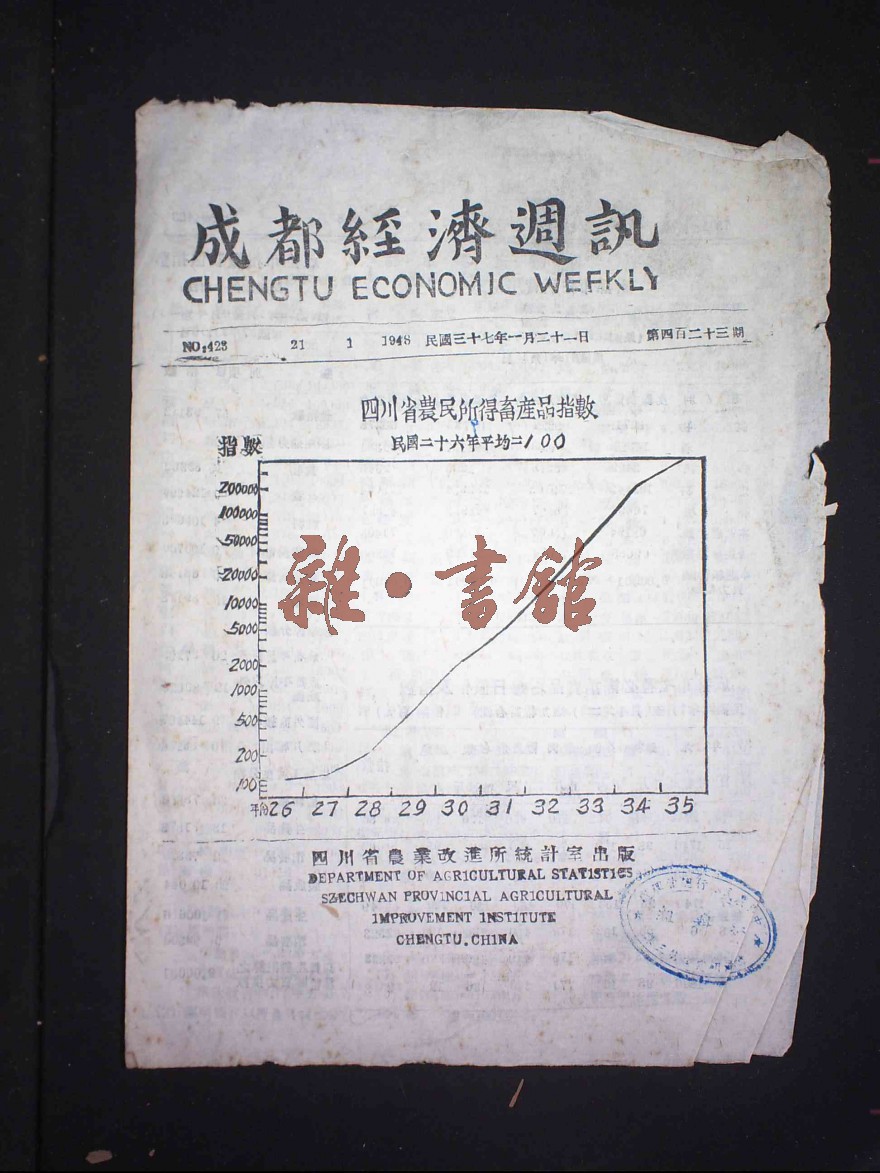 成都經濟週訊
CHENGTU ECONOMIC WEEKLY
NO:423 21 1 1948 民國三十七年一月二十一日 第四百二十三期
四川省農民所得畜産品指數
民國二十六年平均=100
指數
200000
100000
50000
20000
10000
5000
2000
1000
500
200
100
年份 26 27 28 29 30 31 32 33 34 35
雜·書館
四川省農業改進所統計室出版
DEPARTMENT OF AGRICULTURAL STATISTICS
SZECHWAN PROVINCIAL AGRICULTURAL
IMPROVEMENT INSTITUTE
CHENGTU.CHINA